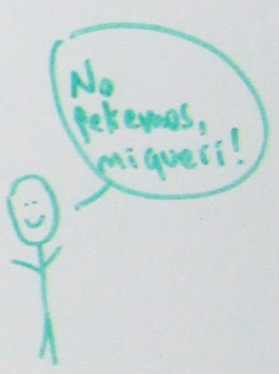 No
petemos,
miquerí!